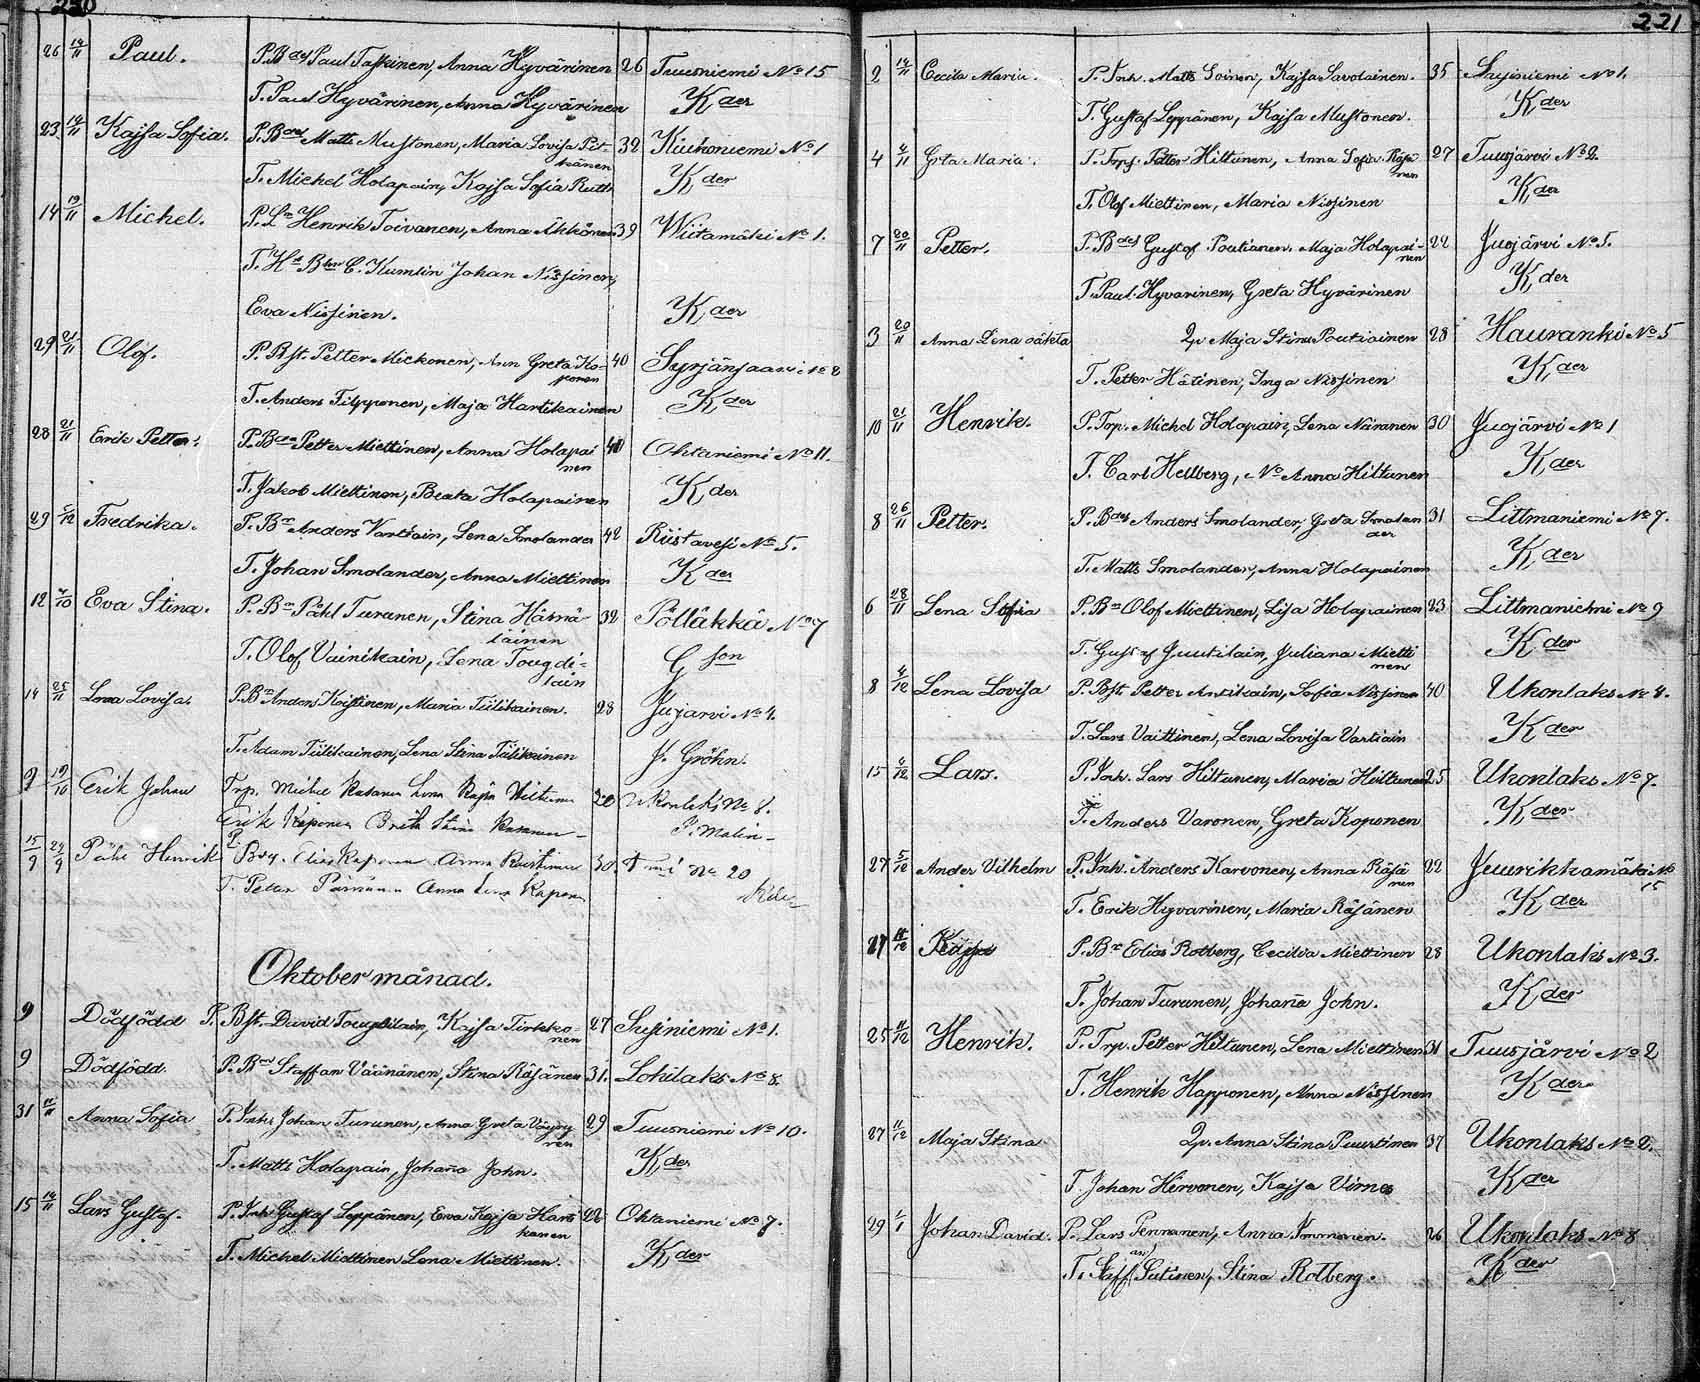 220
26 14/11 Paul. P. Bdes Paul Taskinen, Anna Hyvärinen 26 Tuusniemi No 15
T. Paul Hyvärinen, Anna Hyvärinen Kder
23 14/11 Kajsa Sofia. P. Bdes Matts Mustonen, Maria Lovisa Pit- 32 Kiukoniemi No 1
känen
T. Michel Holapain, Kajsa Sofia Ruth Kder
14 19/11 Michel. P. Ln Henrik Toivanen, Anna Ikkönen 39 Wiitamäki No 1.
T. Hd Bln C. Kumlin Johan Nissinen,
Eva Nissinen. Kder
29 21/11 Olof. P. Bst. Petter Mickonen, Ann Greta Ko- 40 Syrjänsaari No 8
ponen
T. Anders Tilpponen, Maja Hartikainen Kder
28 21/11 Erik Petter. P. Bdes Petter Miettinen, Anna Holapai 40 Ohtaniemi No 11.
nen
T. Jakob Miettinen, Beata Holapainen Kder
29 /12 Fredrika. P. Bn Anders Vartiain, Lena Smolander 42 Riistavesi No 5.
T. Johan Smolander, Anna Miettinen Kder
12 /10 Eva Stina. P. Bn Påhl Turunen, Stina Hämä- 32 Pölläkkä No 7
läinen
T. Olof Vainikain, Lena Tougdi- Gson
lain
14 25/11 Lena Lovisa. P. Bn Anders Koistinen, Maria Tiilikainen. 28 Jujarvi No 4.
T. Adam Tiilikainen, Lena Stina Tiilikainen J. Gröhn.
9 19/10 Erik Johan Trp. Michel Rasanen Lena Kajsa Hiltunen 20 Ukonlaks No 8.
Erik Kaponen Brita Stina Rasanen J. Malin
15/9 29/9 Påhl Henrik P. Elias Kaponen Anna Ruistinen 30 No 20
T. Petter Anna Lena Kaponen Kder
Oktober månad.
9 Dödfödd P. Bst. David Tougdilain, Kajsa Tirkko- 27 Susiniemi No 1.
nen
9 Dödfödd. P. Bdes Staffan Väänänen, Stina Räsänen 31. Lohilaks No 8.
31 11/11 Anna Sofia P. Inh. Johan Turunen, Anna Greta 29 Tuusniemi No 10.
T. Matts Holapain, Johaña John. Kder
15 14/11 Lars Gustaf. P. Inh. Gustaf Leppänen, Eva Kajsa Hari- 22 Ohtaniemi No 7.
kanen
T. Michel Miettinen Lena Miettinen. Kder
221
2 14/11 Cecilia Maria. P. Inh. Matts Soinen, Kajsa Savolainen. 35 Susiniemi No 1.
T. Gustaf Leppänen, Kajsa Mustonen. Kder
4 /11 Greta Maria. P. Trp. Petter Hiltunen, Anna Sofia Räsä 27 Tuusjärvi No 2.
nen
T. Olof Miettinen, Maria Nissinen Kder
7 20/11 Petter. P. Bdes Gustaf Poutianen. Maja Holapai- 22 Juojärvi No 5.
nen
T. Paul Hyvarinen, Greta Hyvärinen Kder
3 20/11 Anna Lena oäkta Qv. Maja Stina Poutiainen 28 Hauranki No 5
T. Petter Hätinen, Inga Nissinen Kder
10 21/11 Henrik. P. Trp. Michel Holapain, Lena Näranen 30 Juojärvi No 1
T. Carl Hellberg, No Anna Hiltunen Kder
8 26/11 Petter. P. Bdes Anders Smolander, Greta Smolan 31 Littmaniemi No 7.
der
T. Matts Smolander, Anna Holapainen Kder
6 28/11 Lena Sofia P. Bn Olof Miettinen, Lisa Holapainen 23 Littmaniemi No 9
T. Gustaf Juutilain, Juliana Mietti Kder
nen
8 4/12 Lena Lovisa P. Bst. Petter Antikain, Sofia Nissinen 40 Ukonlaks No 4.
T. Lars Vaittinen, Lena Lovisa Vartiain Kder
15 4/12 Lars. P. Inh. Lars Hiltunen, Maria Hiltunen 25 Ukonlaks No 7.
T. Anders Varonen, Greta Koponen Kder
27 5/12 Ander Vilhelm P. Inh. Anders Karvonen, Anna Räsä 22 Juurikkamäki No
nen 15
T. Erik Hyvarinen, Maria Räsänen Kder
27 11/12 Kajsa P. Bn Elias Rotberg, Cecilia Miettinen 28 Ukonlaks No 3.
T. Johan Turunen, Johaña John. Kder
25 11/12 Henrik. P. Trp. Petter Hiltunen, Lena Miettinen 31 Tuusjärvi No 2
T. Henrik Happonen, Anna Nissinen Kder
27 11/12 Maja Stina Qv. Anna Stina Puurtinen 37 Ukonlaks No 2.
T. Johan Hirvonen, Kajsa Virnes Kder
29 1/1 Johan David. P. Lars Pennanen, Anna Immonen. 26 Ukonlaks No 8
T. Staffan Sutinen, Stina Rotberg. Kder